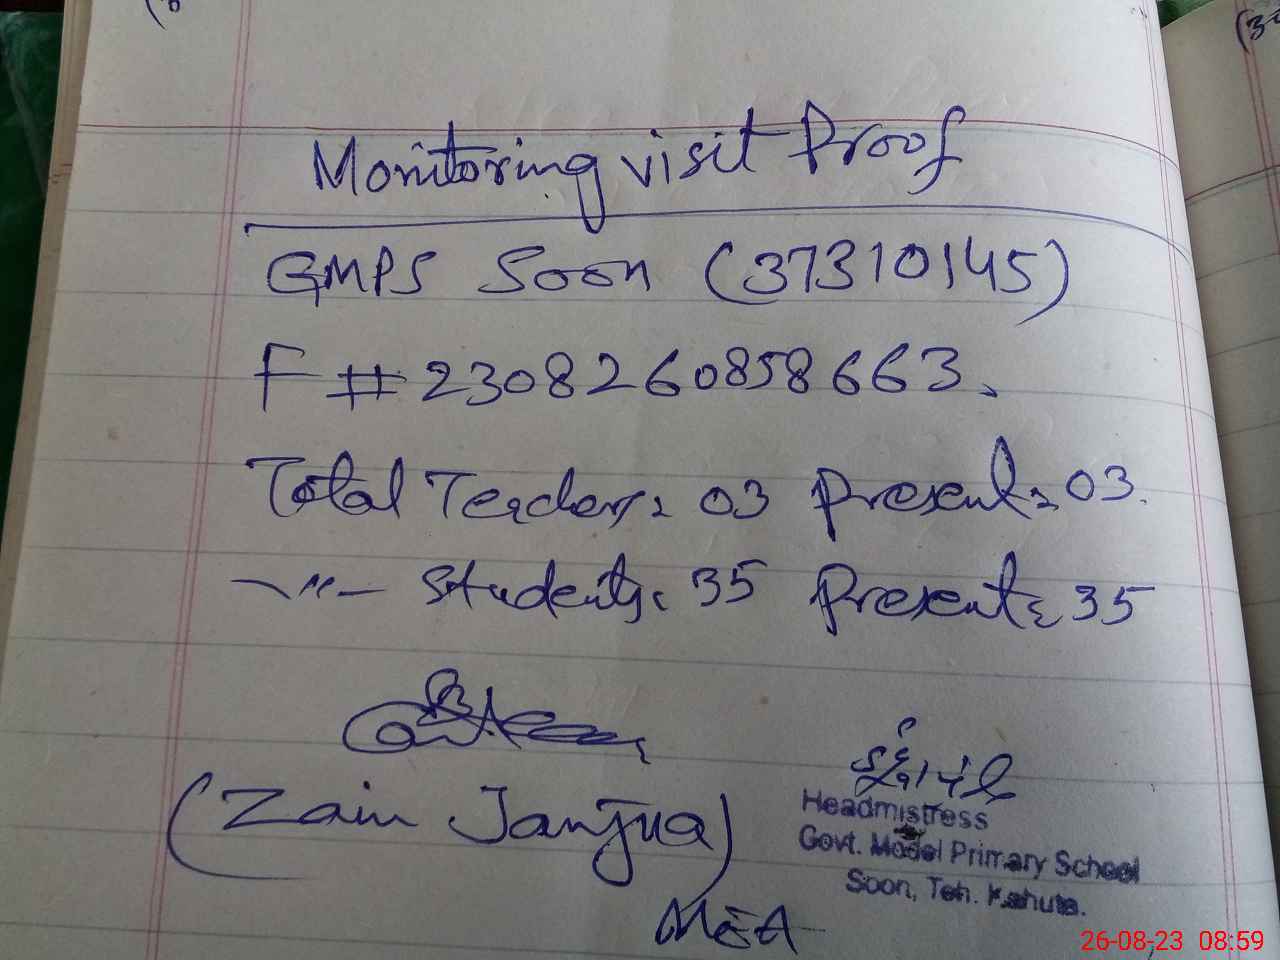 Monitoring visit Proof
GMPS Soon (37310145)
F # 2308260858663.
Total Teachers: 03 Present: 03.
-〃- Students: 35 Present: 35
(Zain Janjua)
MEA
Headmistress
Govt. Model Primary School
Soon, Teh. Kahuta.
26-08-23 08:59